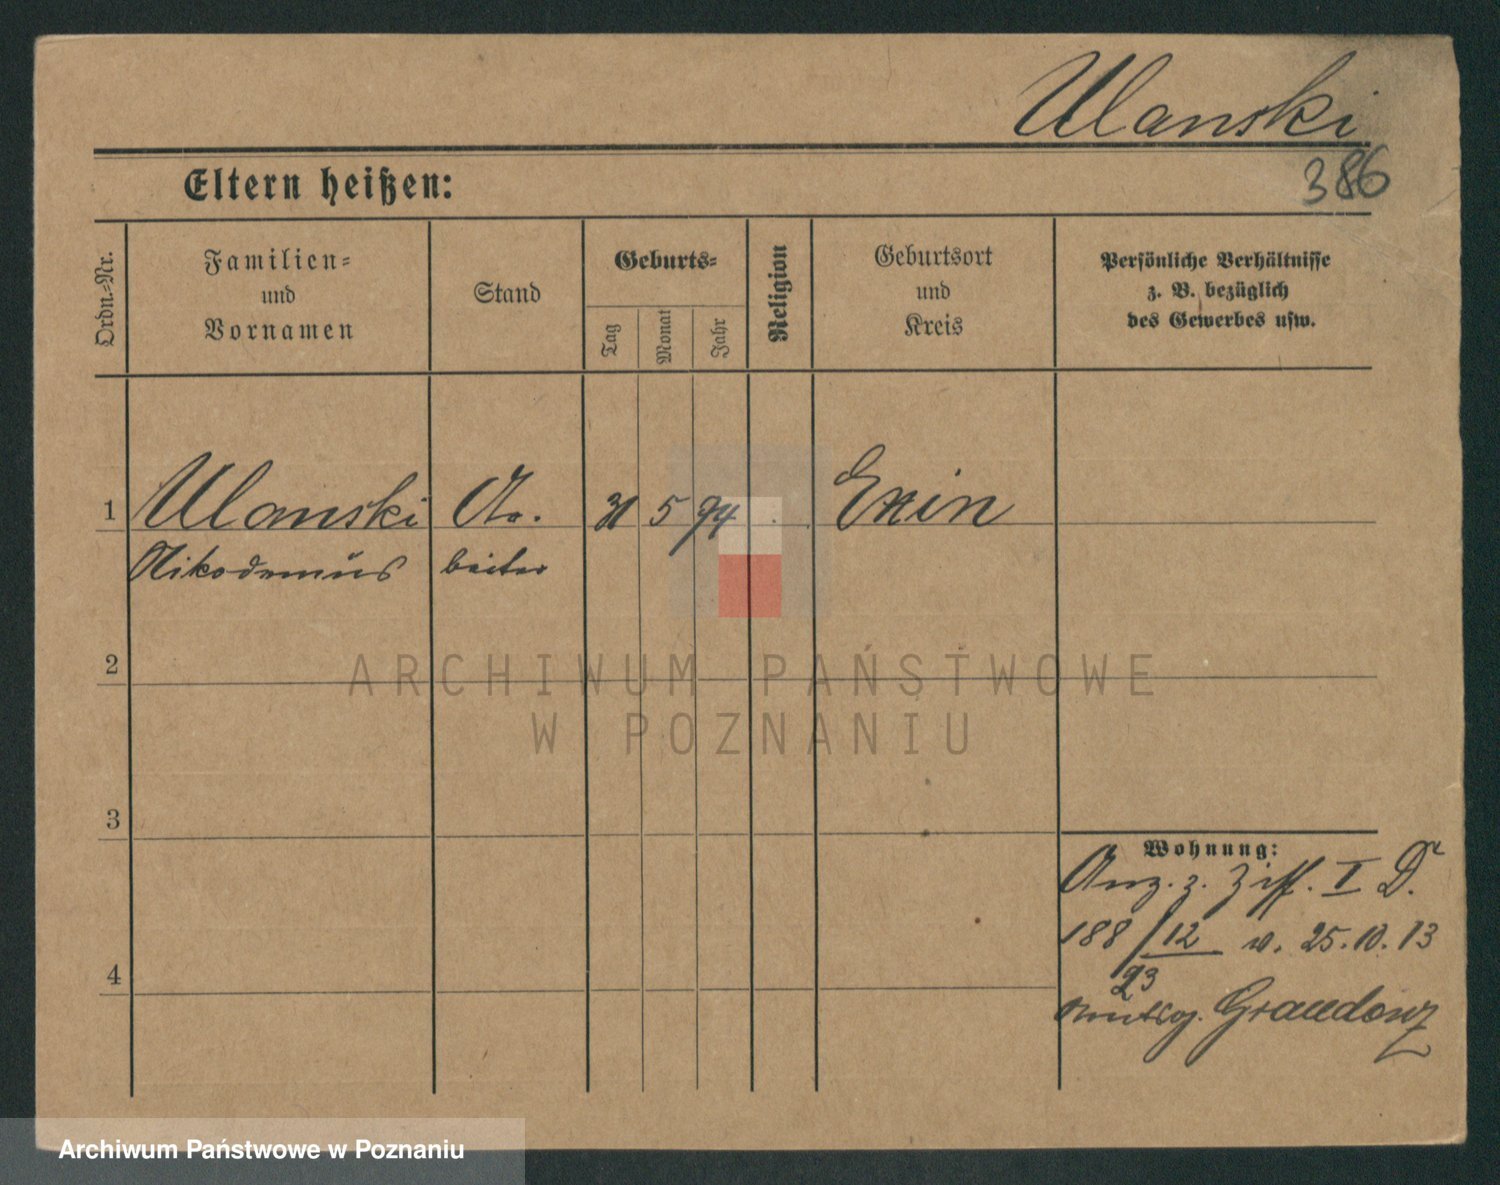 Ulanski
386
Eltern heißen:
Ordn.-Nr.
Familien-
und
Vornamen
Stand
Geburts-
Tag
Monat
Jahr
Religion
Geburtsort
und
Kreis
Persönliche Verhältnisse
z. B. bezüglich
des Gewerbes usw.
1 Ulanski Ar. 31 5 94 Exin
Nikodemus beiter
2
ARCHIWUM PAŃSTWOWE
W POZNANIU
3
Wohnung:
Anz. z. Ziff. I D.
188/12 v. 25.10.13
23
Graudenz
4
Archiwum Państwowe w Poznaniu